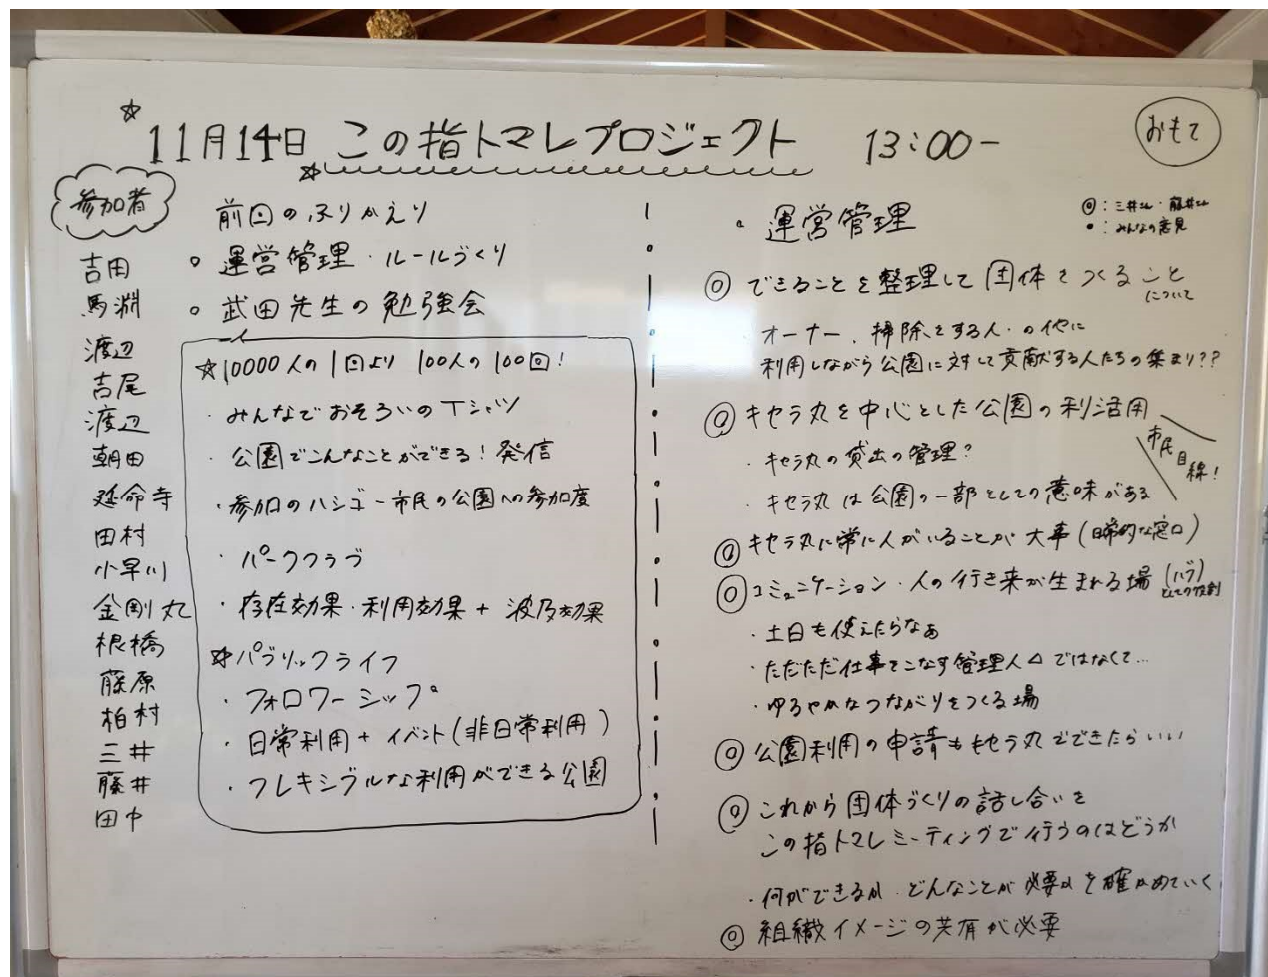 ☆11月14日 この指トマレプロジェクト 13:00-
おもて
参加者
吉田
馬淵
渡辺
吉尾
渡辺
朝田
延命寺
田村
小早川
金剛丸
根橋
藤原
柏村
三井
藤井
田中
☆前回のふりかえり
。運営管理・ルールづくり
。武田先生の勉強会
☆10000人の1回より 100人の100回!
・みんなでおそろいのTシャツ
・公園でこんなことができる!発信
・参加のハシゴー市民の公園への参加度
・パーククラブ
・存在効果・利用効果+波及効果
☆パブリックライフ
・フォロワーシップ
・日常利用+イベント(非日常利用)
・フレキシブルな利用ができる公園
。運営管理
◎:三井さん・藤井さん
・:みんなの意見
◎できることを整理して団体をつくること
について
オーナー、掃除をする人・の他に
利用しながら公園に対して貢献する人たちの集まり??
◎キセラ丸を中心とした公園の利活用
市民目線!
・キセラ丸の貸出の管理?
・キセラ丸は公園の一部としての意味がある
◎キセラ丸に常に人がいることが大事(日常的な窓口)
◎コミュニケーション・人の行き来が生まれる場(ハブ)
としての役割
・土日も使えたらなぁ
・ただただ仕事をこなす管理人△ではなくて…
・ゆるやかなつながりをつくる場
◎公園利用の申請もキセラ丸でできたらいい
◎これから団体づくりの話し合いを
この指トマレミーティングで行うのはどうか
・何ができるか・どんなことが必要かを確かめていく
◎組織イメージの共有が必要